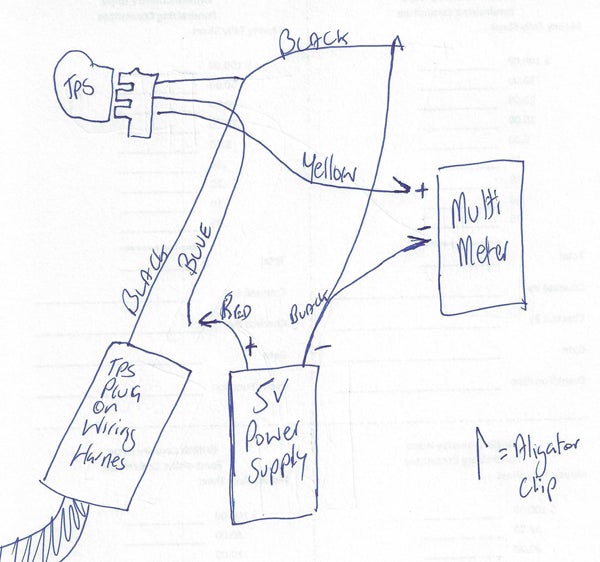 BLACK
TPS
Yellow
+
Multi
Meter
-
BLACK
BLUE
RED
BLACK
+
-
TPS
Plug
on
Wiring
Harnes
5V
Power
Supply
= Aligator
Clip